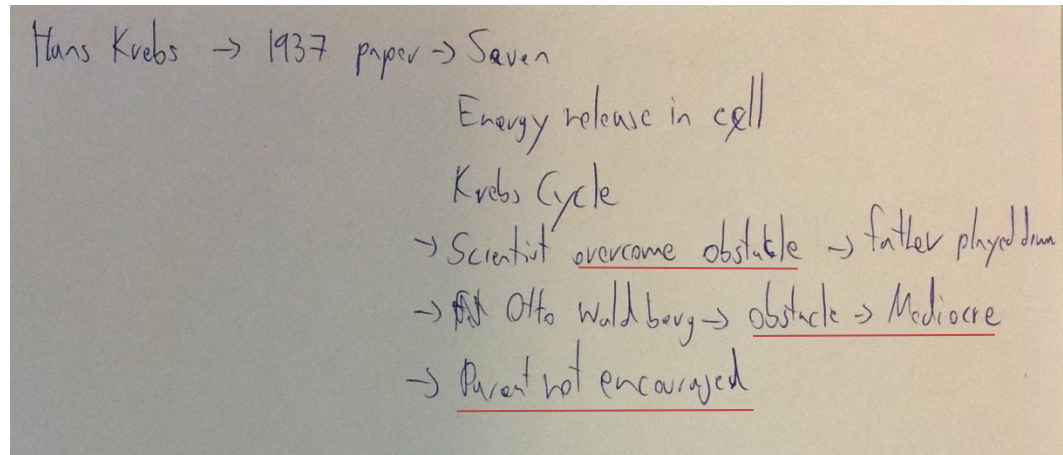 Hans Krebs → 1937 paper → Seven
Energy release in cell
Krebs Cycle
→ Scientist overcome obstacle → father played down
→ Otto Waldberg → obstacle → Mediocre
→ Parent not encouraged